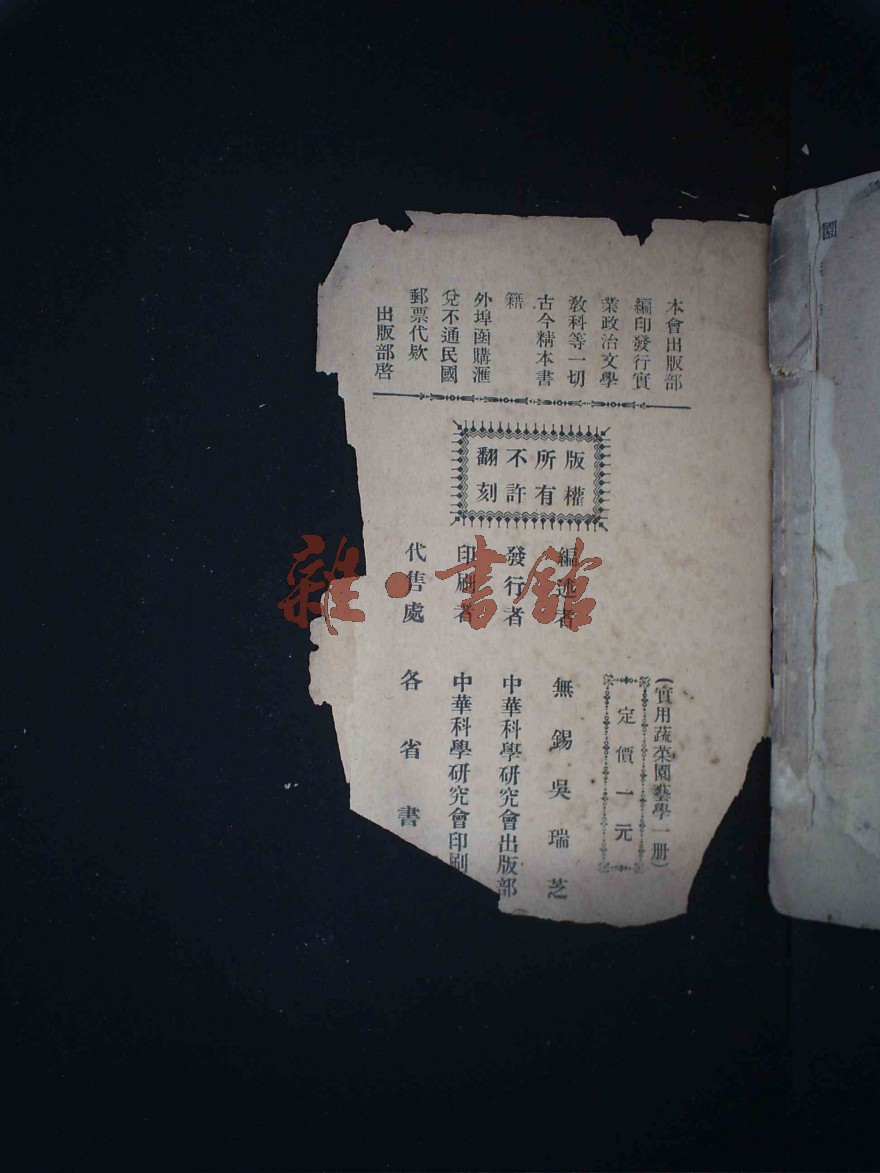 本會出版部
編印發行實
業政治文學
敎科等一切
古今精本書
籍
外埠函購滙
兌不通民國
郵票代欵
出版部啓
版權
所有
不許
翻刻
(實用蔬菜園藝學一册)
定價一元
編述者 無錫吳瑞芝
發行者 中華科學研究會出版部
印刷者 中華科學研究會印刷
代售處 各省書
園
雜·書館